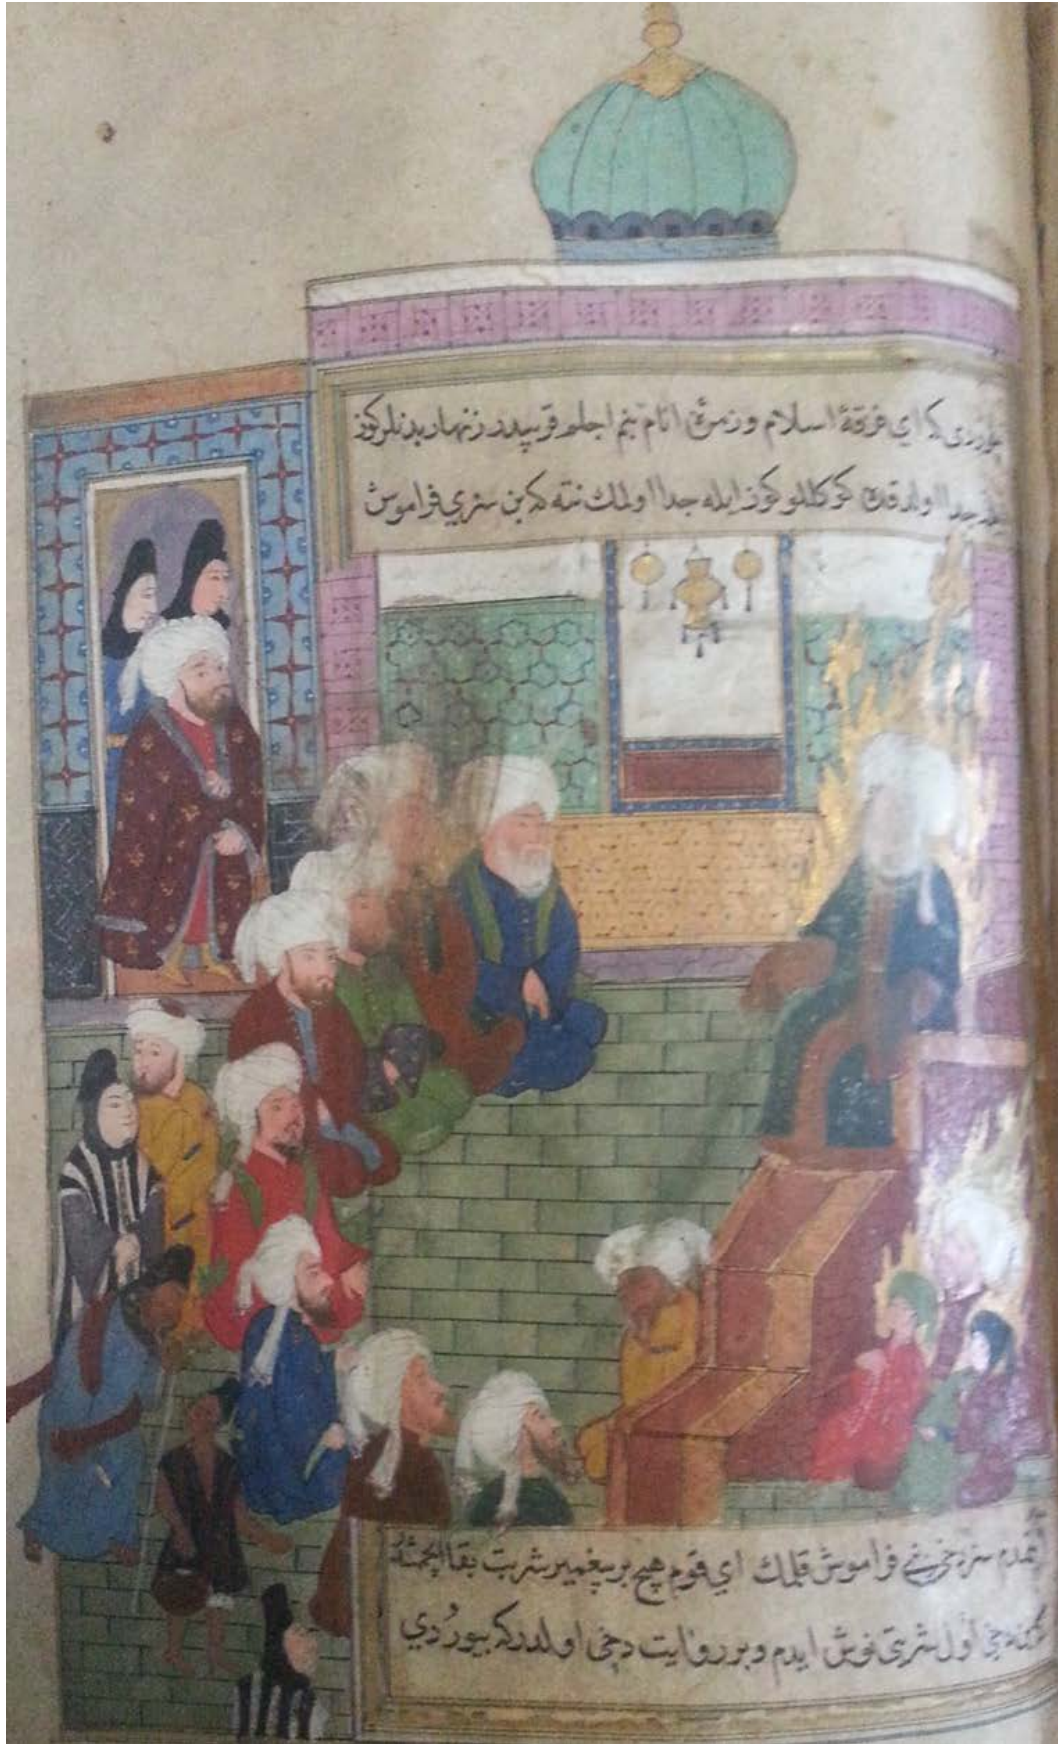 كه اي فرقهٔ اسلام وزمرهٔ انام بنم اجلم قريبدر زنهار بدنلركوز
جدا اولدقدن كوكللركوز ايله جدا اولمك نته كه بن سزي فراموش
اتمدم سز دخي بني فراموش قلمك اي قوم هيچ بر پيغمبر شربت بقا ايچمشدر
دخي اول شربتي نوش ايدم وبر روايت دخي اولدركه بيوردي